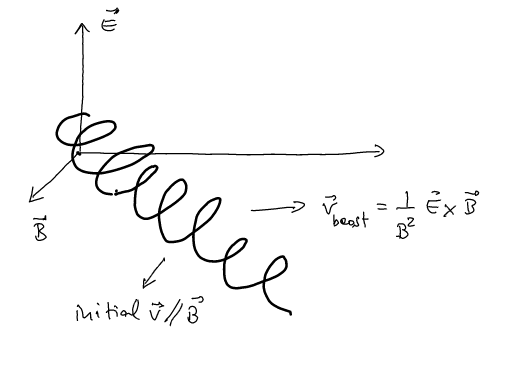 E⃗
B⃗
v⃗_boost = 1/B² E⃗ × B⃗
initial v⃗ // B⃗